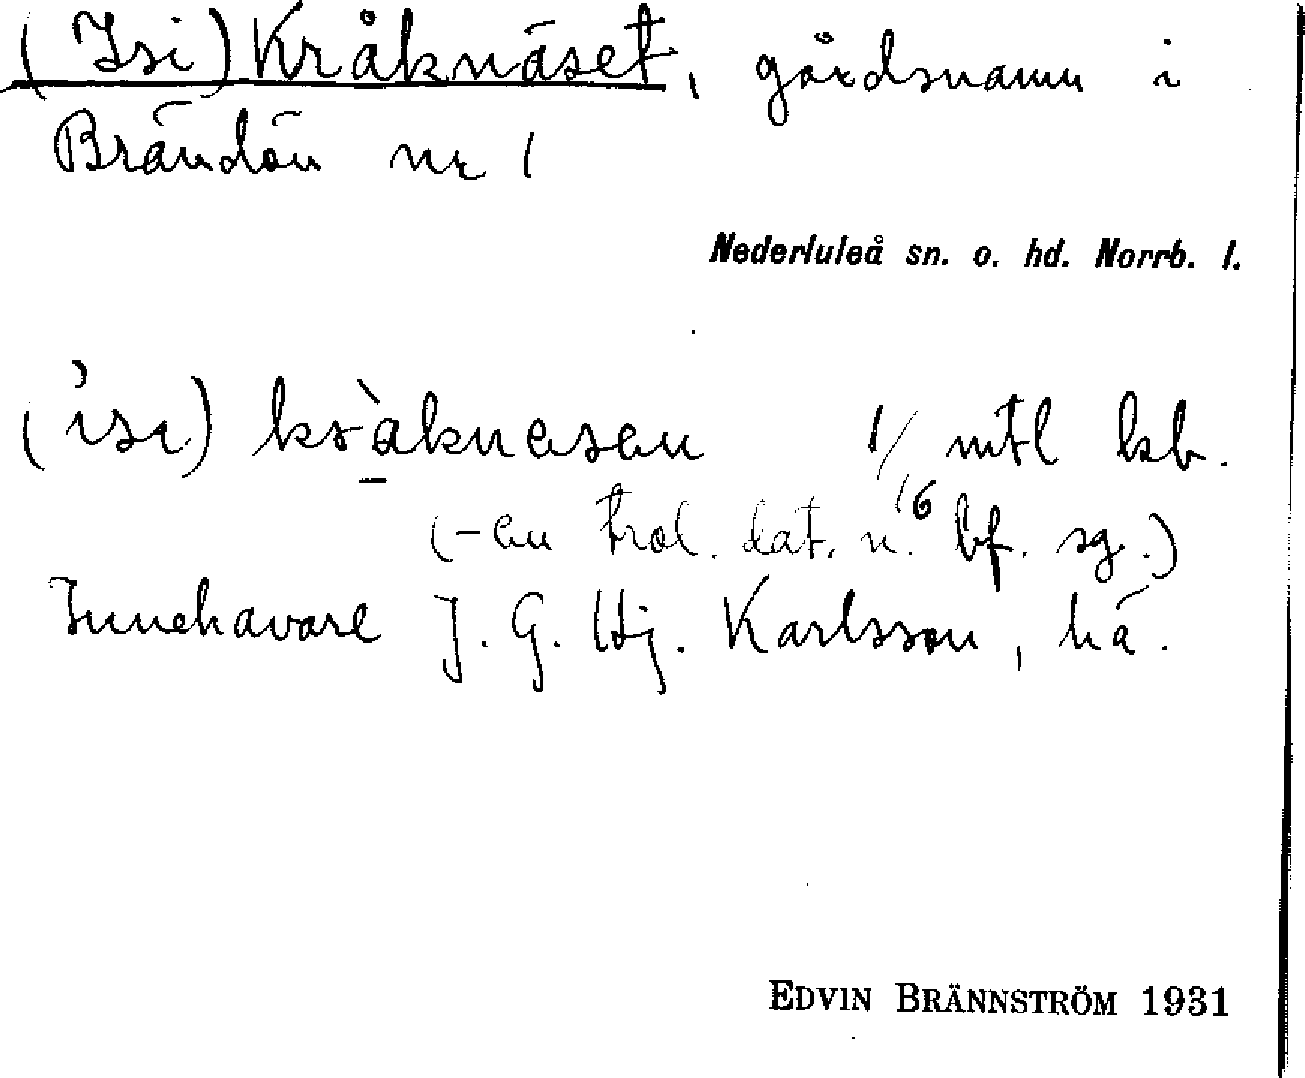 (Isi) Kråknäset, gårdsnamn i
Brändön nr 1
Nederluleå sn. o. hd. Norrb. l.
(ísı) kràknesen 1/16 mtl kb.
(-en trol. dat. n. bf. sg.)
Innehavare J. G. Hj. Karlsson, hä.
EDVIN BRÄNNSTRÖM 1931